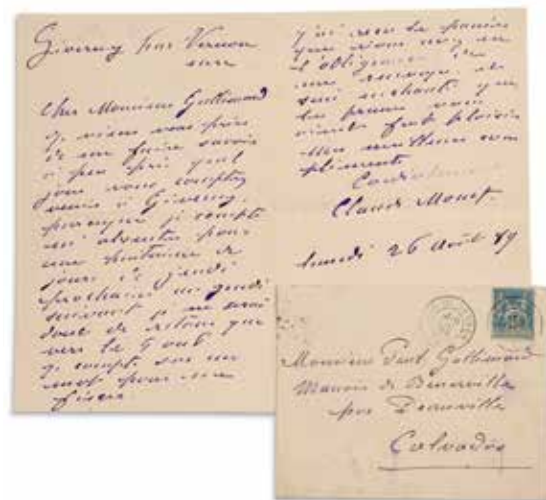 Giverny par Vernon
eure
Cher Monsieur Gallimard
je viens vous prier
de me faire savoir
à peu près quel
jour vous comptez
venir à Giverny,
parce que je compte
m'absenter pour
une huitaine de
jours de jeudi
prochain au jeudi
suivant je ne serai
donc de retour que
vers le 6
je compte sur un
mot pour me
fixer.
j'ai reçu le panier
que vous avez eu
l'obligeance de
me
suis enchanté que
les prunes vous
aient fait plaisir
Mes meilleurs com
pliments
Claude Monet.
lundi 26 Août 89
Monsieur Paul Gallimard
Manoir de Benerville
par Deauville
Calvados